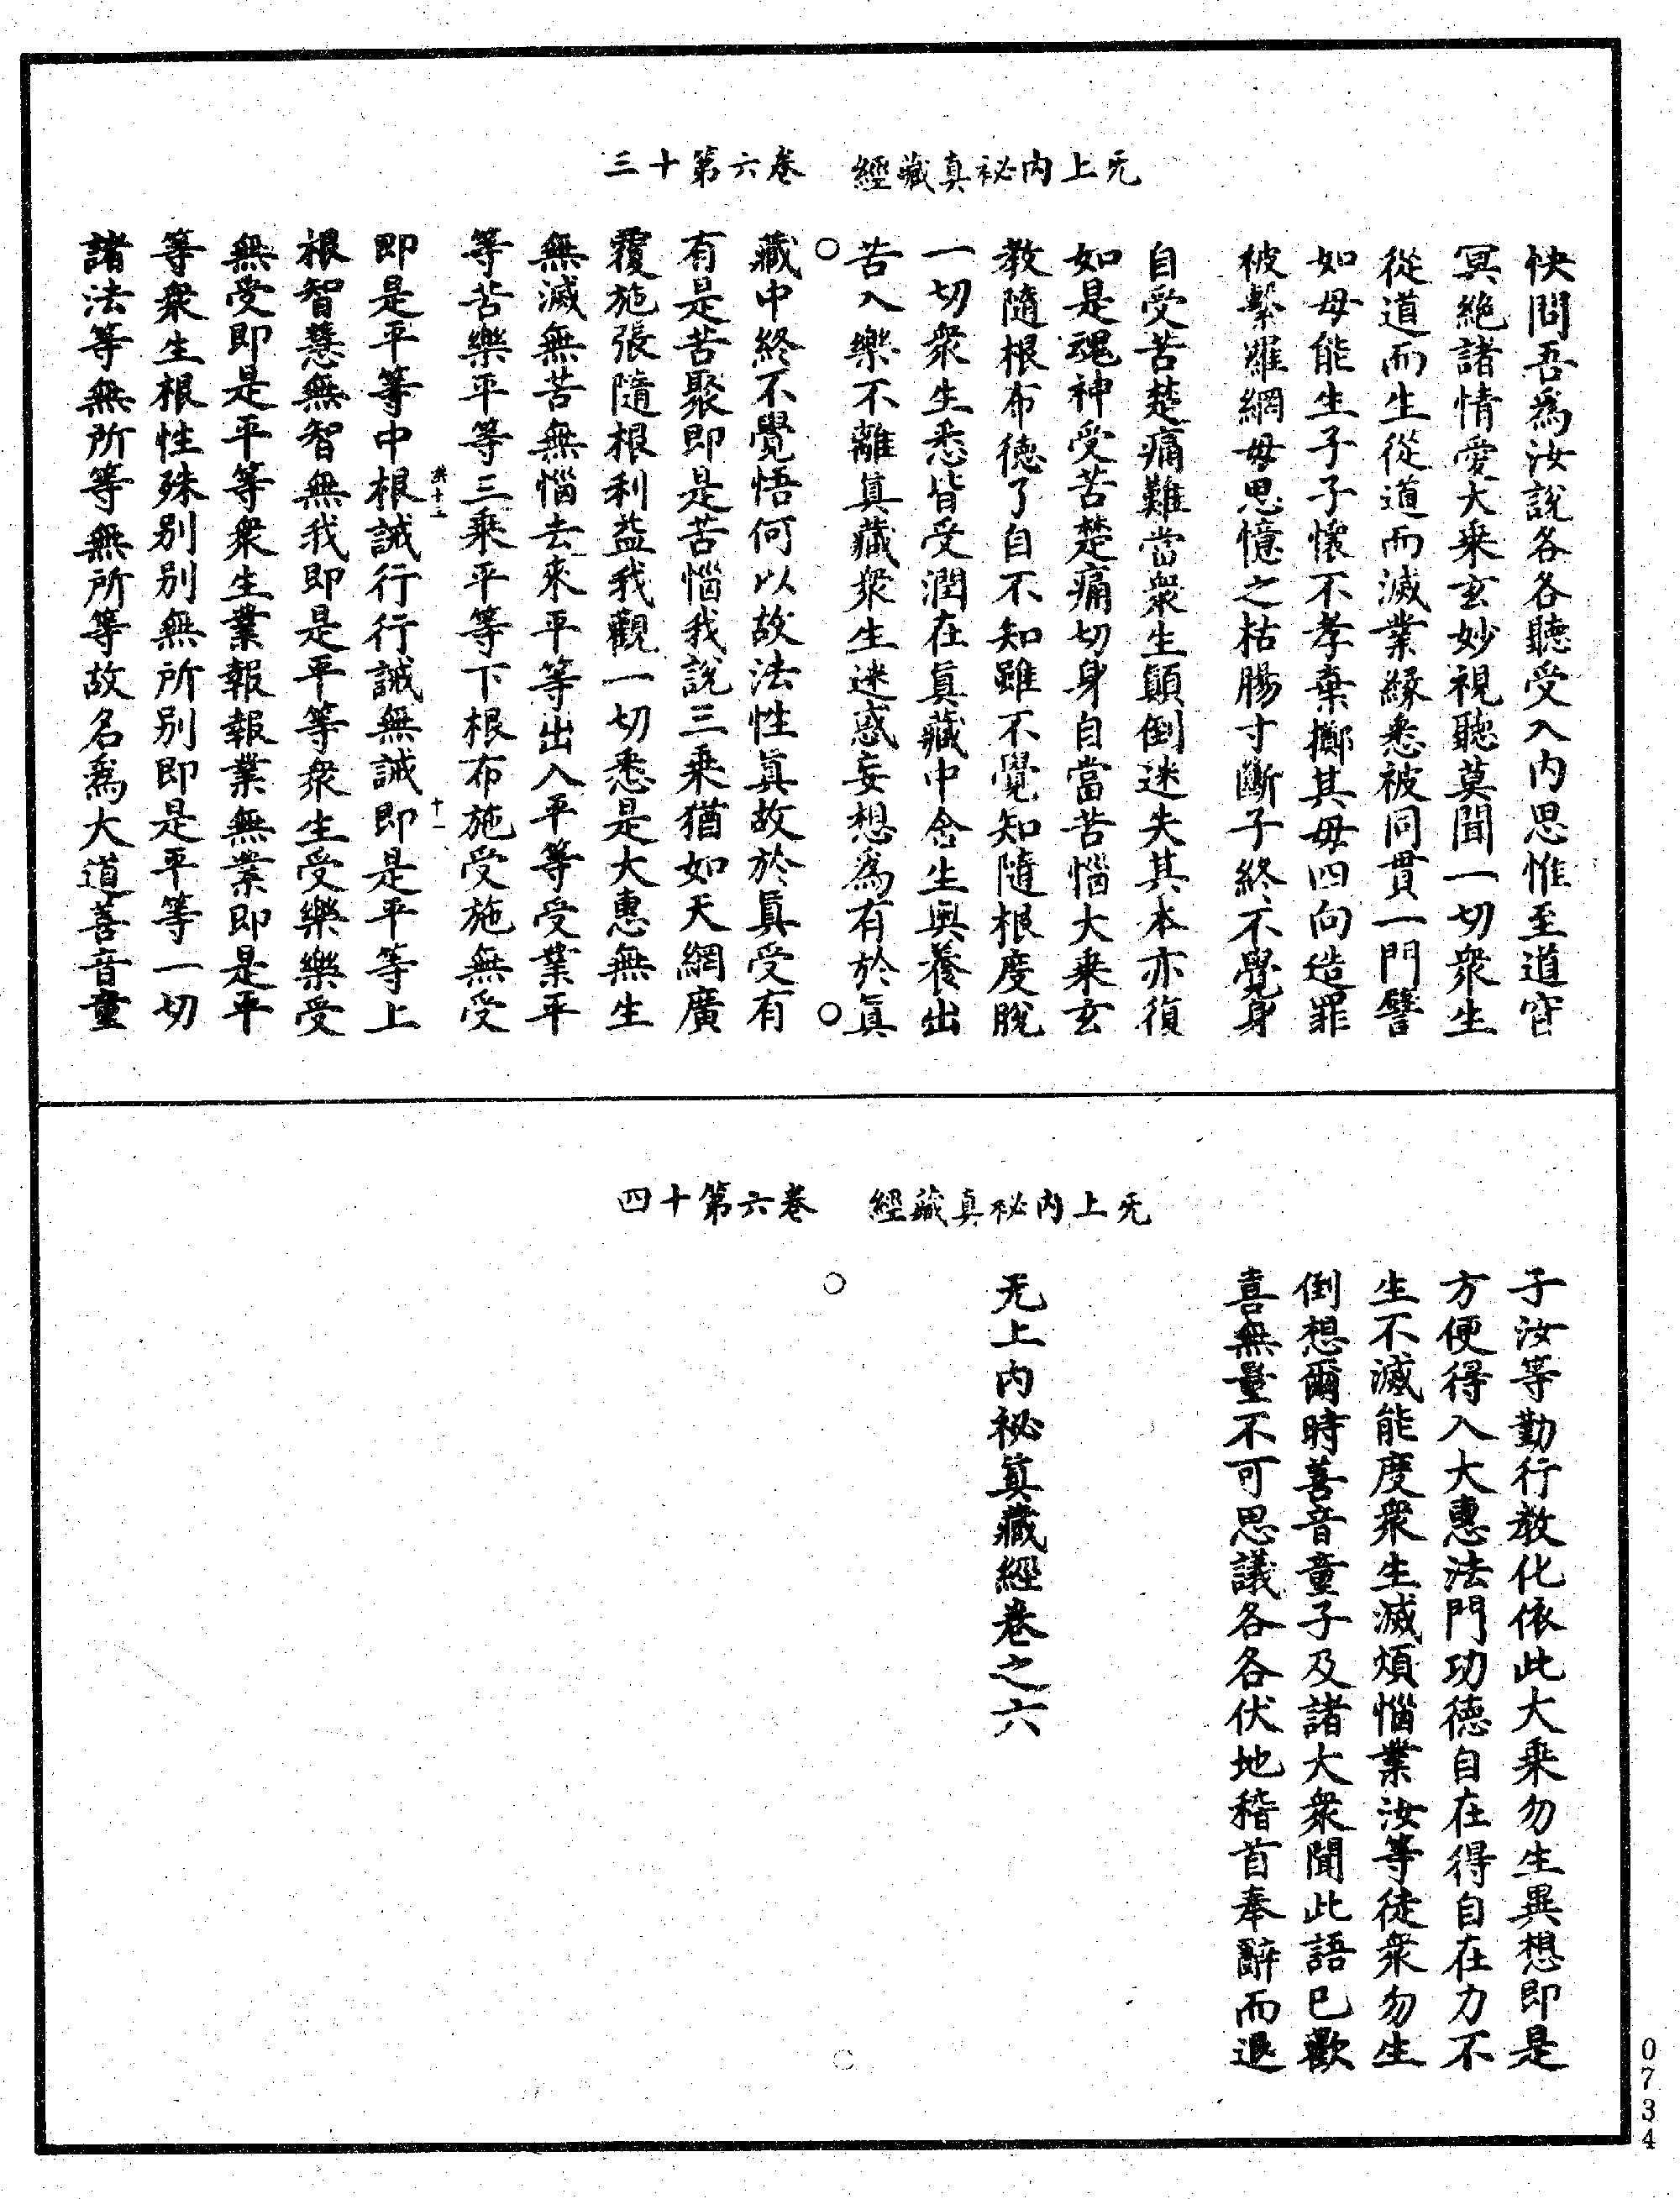 无上內祕真藏經　卷六第十三
快問吾為汝說各各聽受入內思惟至道窅
冥絶諸情愛大乗玄妙視聽莫聞一切衆生
從道而生從道而滅業緣悉被同貫一門譬
如母能生子子懷不孝棄擲其母四向造罪
被繫羅網母思憶之枯腸寸斷子終不覺身
自受苦楚痛難當衆生顛倒迷失其本亦復
如是魂神受苦楚痛切身自當苦惱大乗玄
教隨根布德了自不知雖不覺知隨根度脫
一切衆生悉皆受潤在真藏中含生輿養出
苦入樂不離真藏衆生迷惑妄想為有於真
藏中終不覺悟何以故法性真故於真受有
有是苦聚即是苦惱我說三乗猶如天網廣
覆施張隨根利益我觀一切悉是大惠無生
無滅無苦無惱去來平等出入平等受業平
等苦樂平等三乗平等下根布施受施無受
即是平等中根誡行行誡無誡即是平等上
根智慧無智無我即是平等衆生受樂樂受
無受即是平等衆生業報報業無業即是平
等衆生根性殊別別無所別即是平等一切
諸法等無所等無所等故名為大道善音童
十一
无上內祕真藏經　卷六第十四
子汝等勤行教化依此大乗勿生異想即是
方便得入大惠法門功德自在得自在力不
生不滅能度衆生滅煩惱業汝等徒衆勿生
倒想爾時善音童子及諸大衆聞此語已歡
喜無量不可思議各各伏地稽首奉辭而退
无上內祕真藏經卷之六
0734